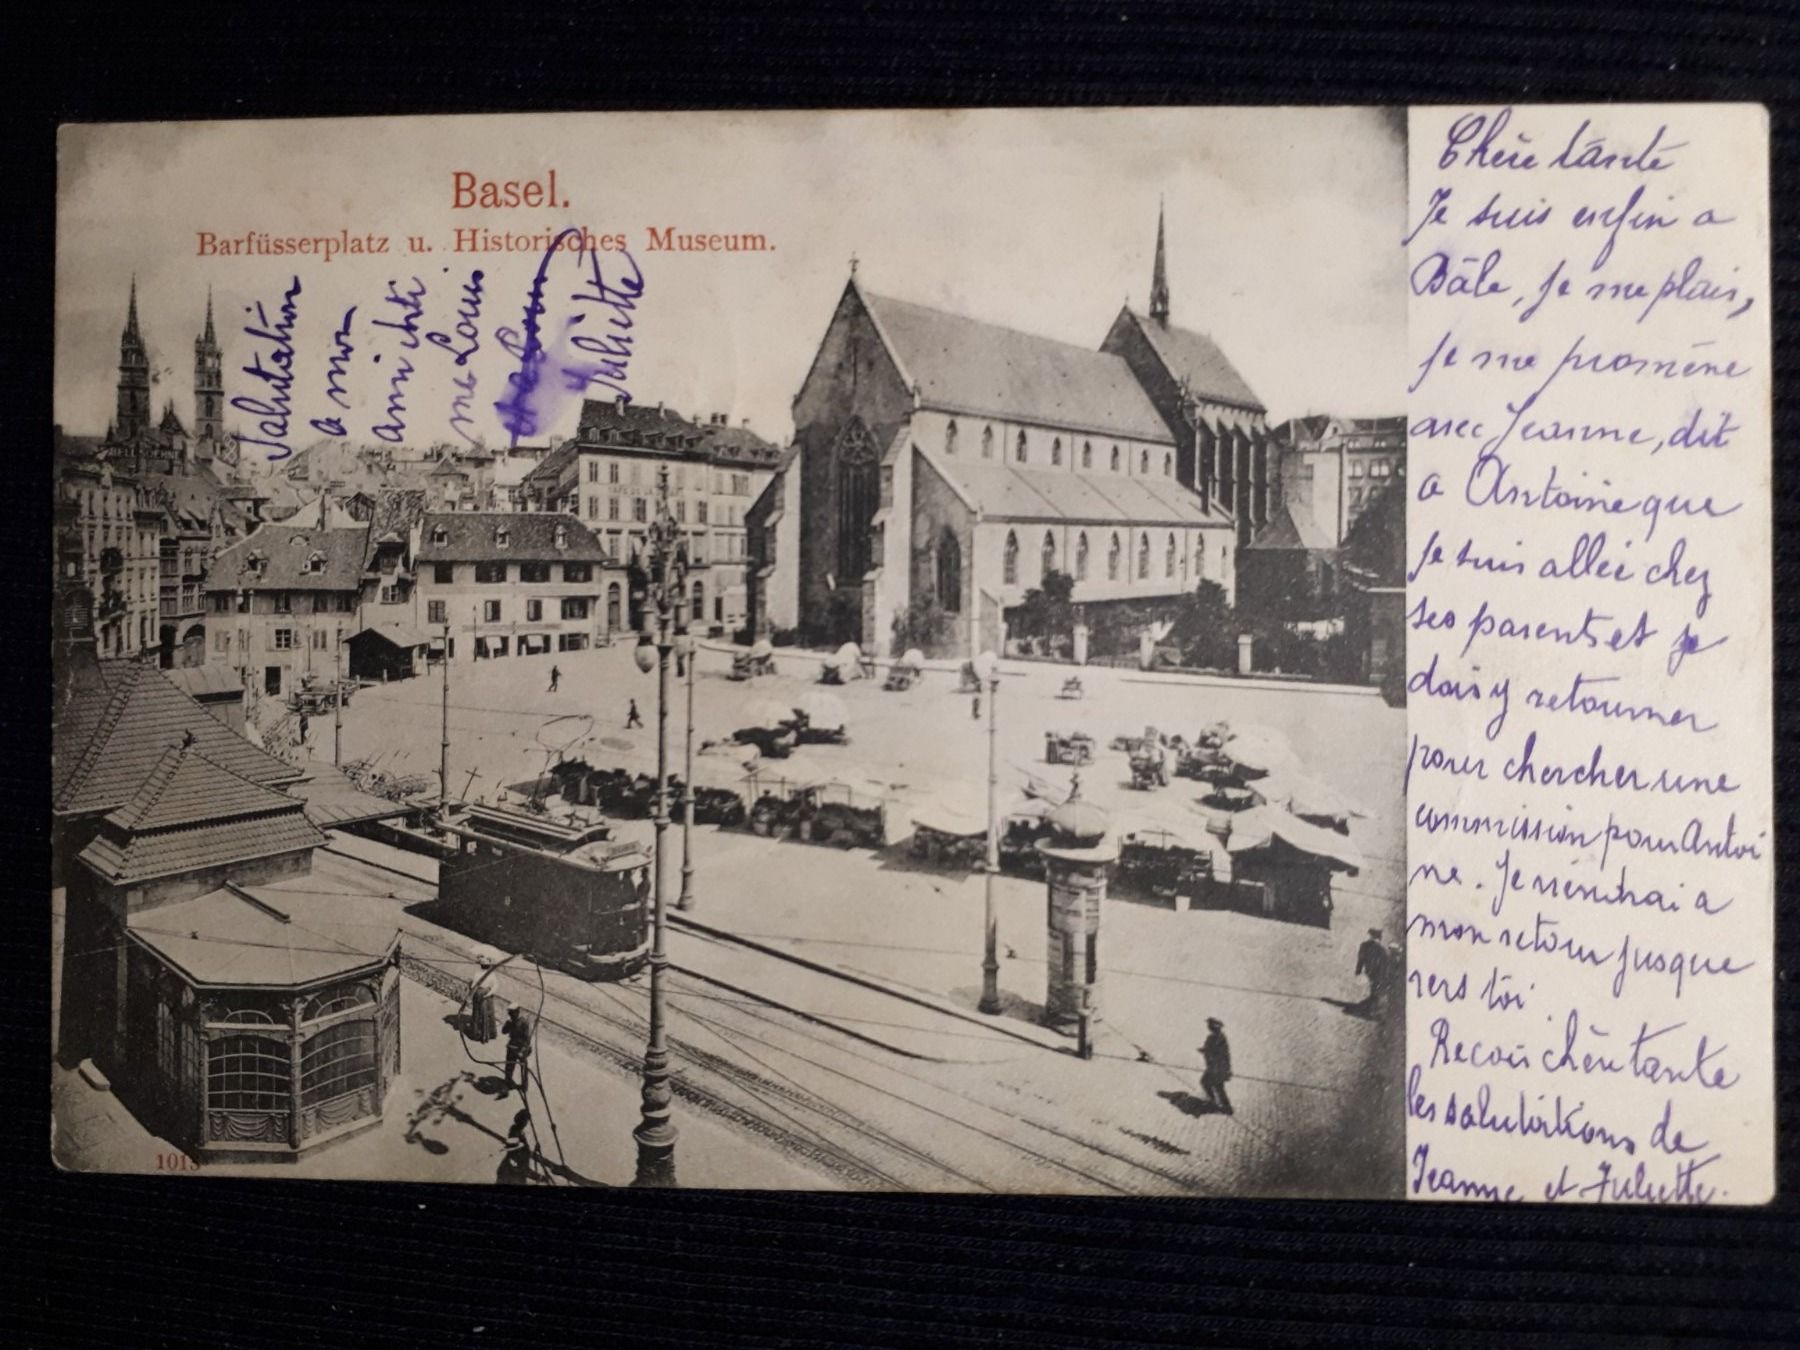 Basel.
Barfüsserplatz u. Historisches Museum.
Salutation
a mon
ami
me Louis
Juliette
1013
Chère tante
Je suis enfin a
Bâle, je me plais,
je me promène
avec Jeanne, dit
a Antoine que
je suis allée chez
ses parents et je
dois y retourner
pour chercher une
commission pour Antoi
ne. Je viendrai a
mon retour jusque
vers toi
Recois chère tante
les salutations de
Jeanne et Juliette.